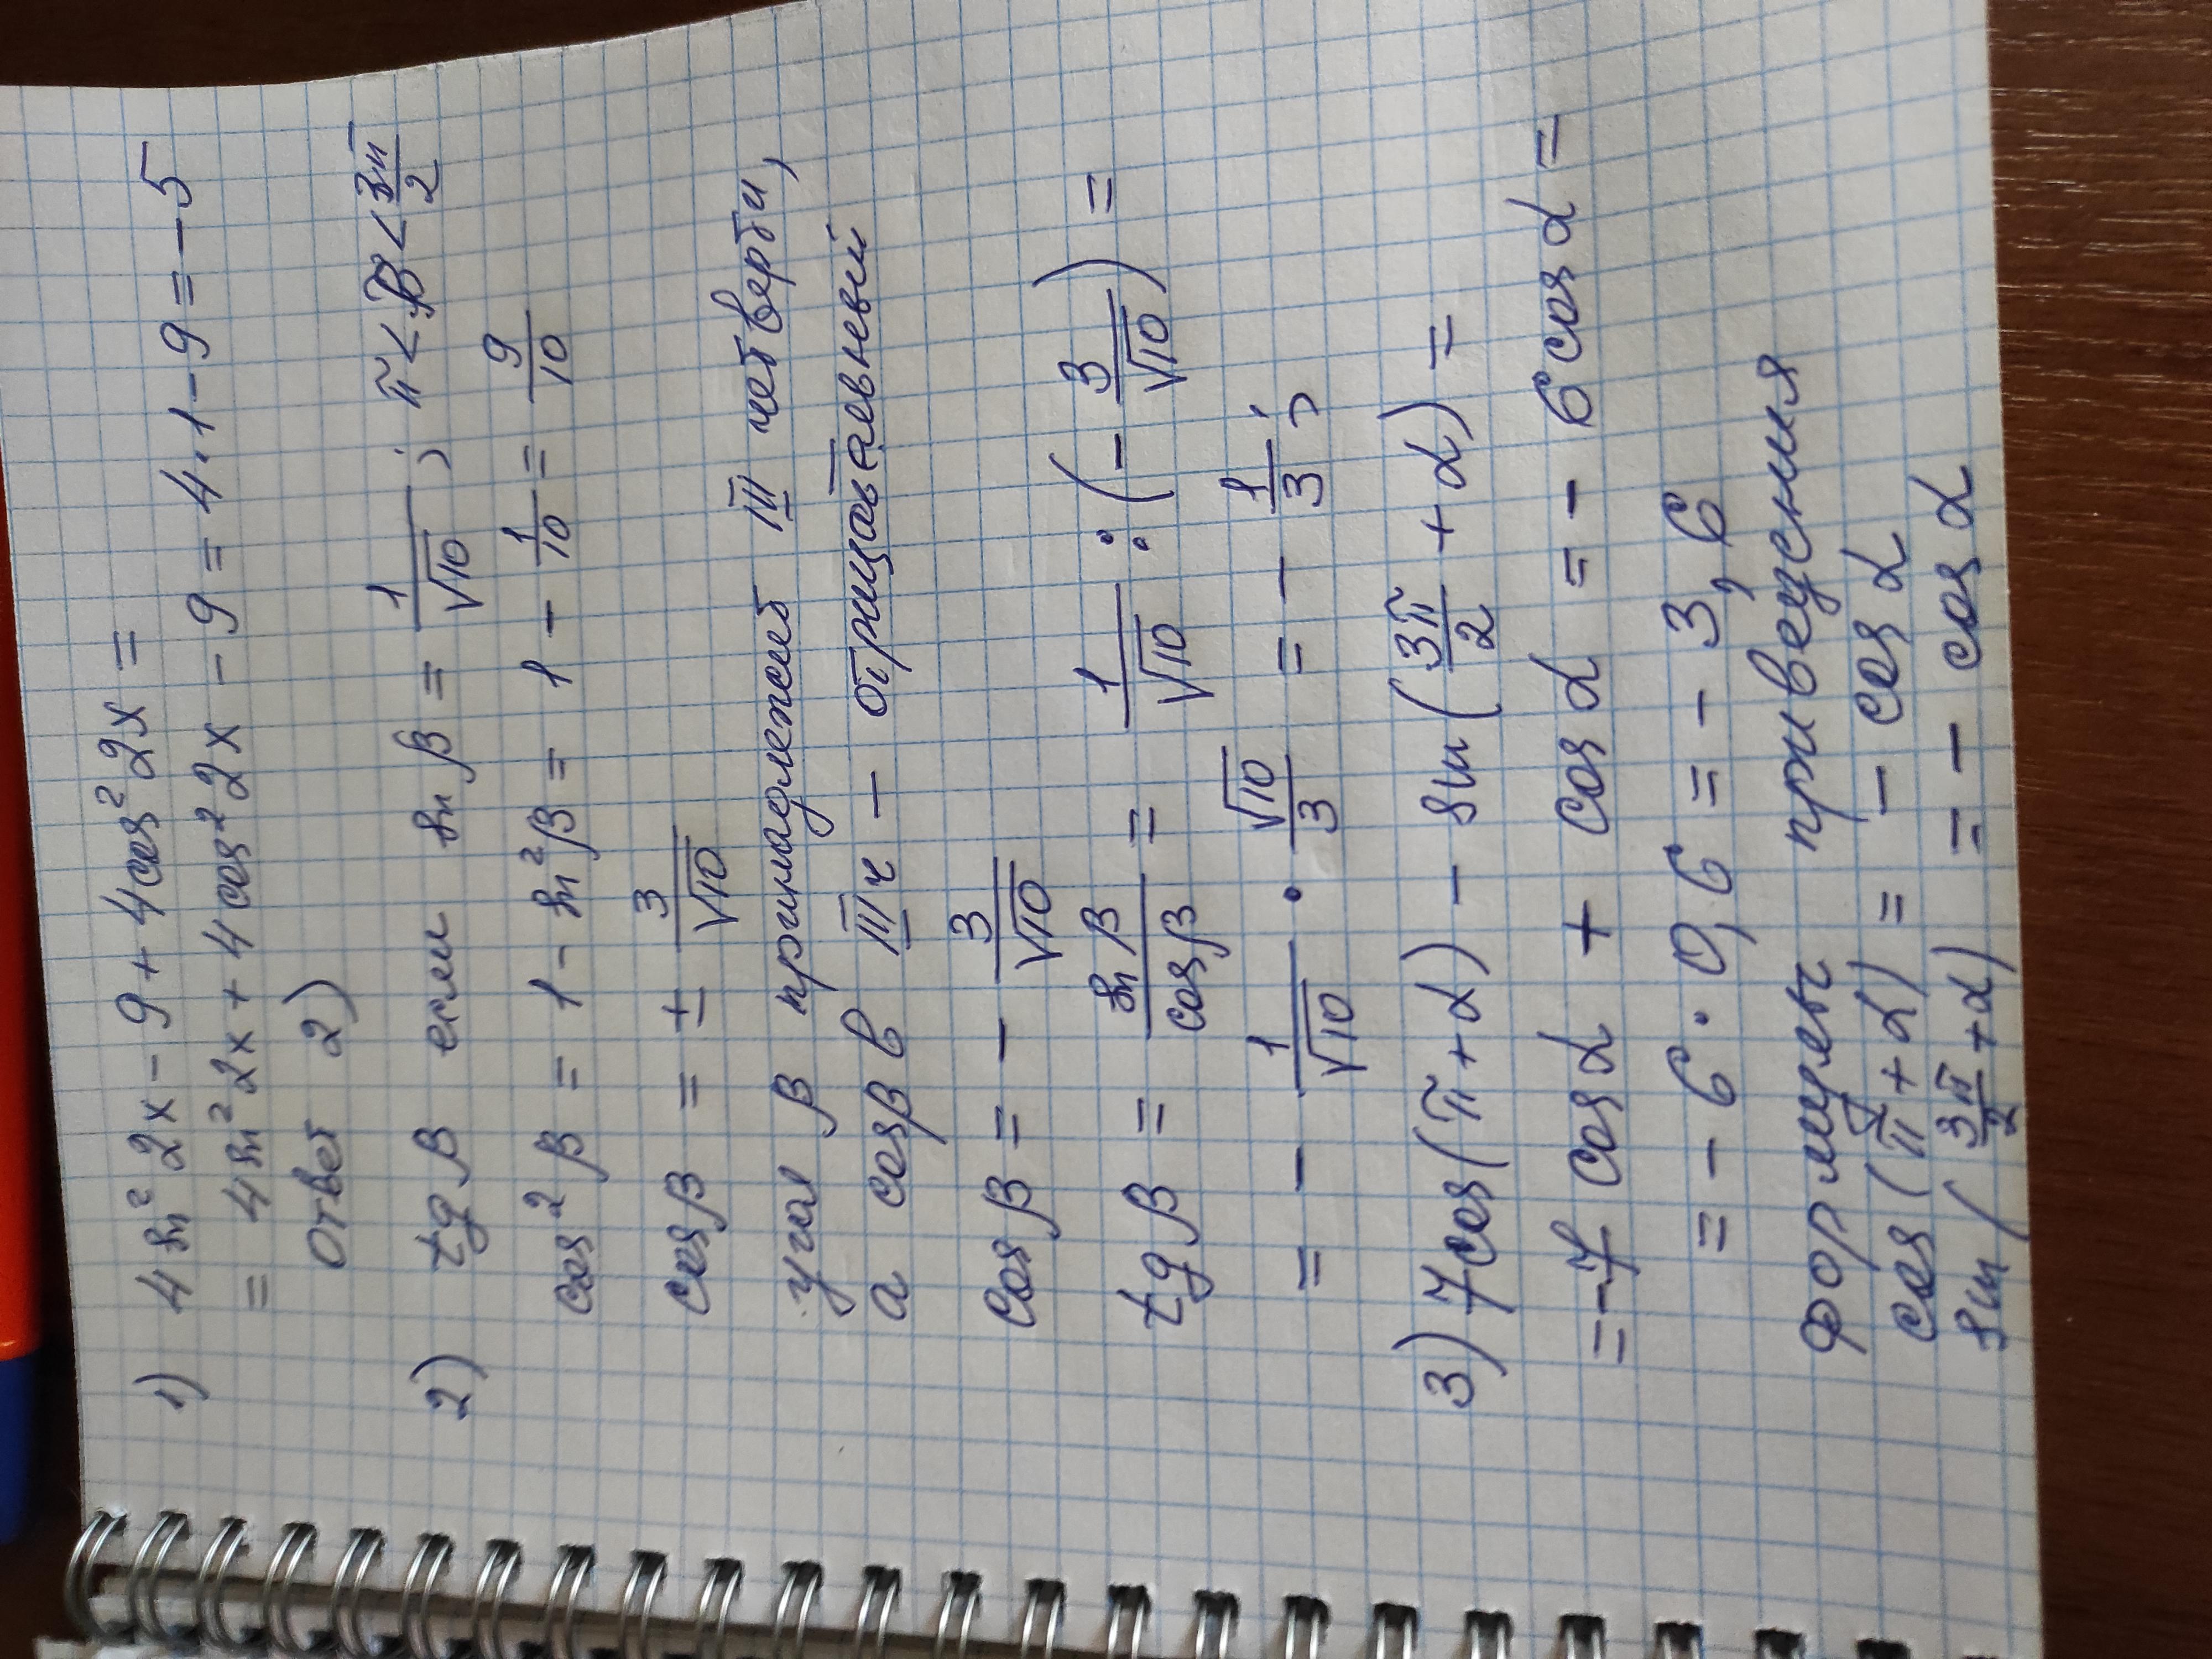 1) 4 sin² 2x - 9 + 4 cos² 2x =
= 4 sin² 2x + 4 cos² 2x - 9 = 4 · 1 - 9 = - 5
Ответ 2)
2) tg β если sin β = 1/√10 ; π < β < 3π/2
cos² β = 1 - sin² β = 1 - 1/10 = 9/10
cos β = ± 3/√10
угол β принадлежит III четверти,
а cos β в III ч - отрицательный
cos β = - 3/√10
tg β = sin β/cos β = 1/√10 : (- 3/√10) =
= - 1/√10 · √10/3 = - 1/3 ;
3) 7 cos (π + α) - sin (3π/2 + α) =
= - 7 cos α + cos α = - 6 cos α =
= - 6 · 0,6 = - 3,6
формулы приведения
cos (π + α) = - cos α
sin (3π/2 + α) = - cos α